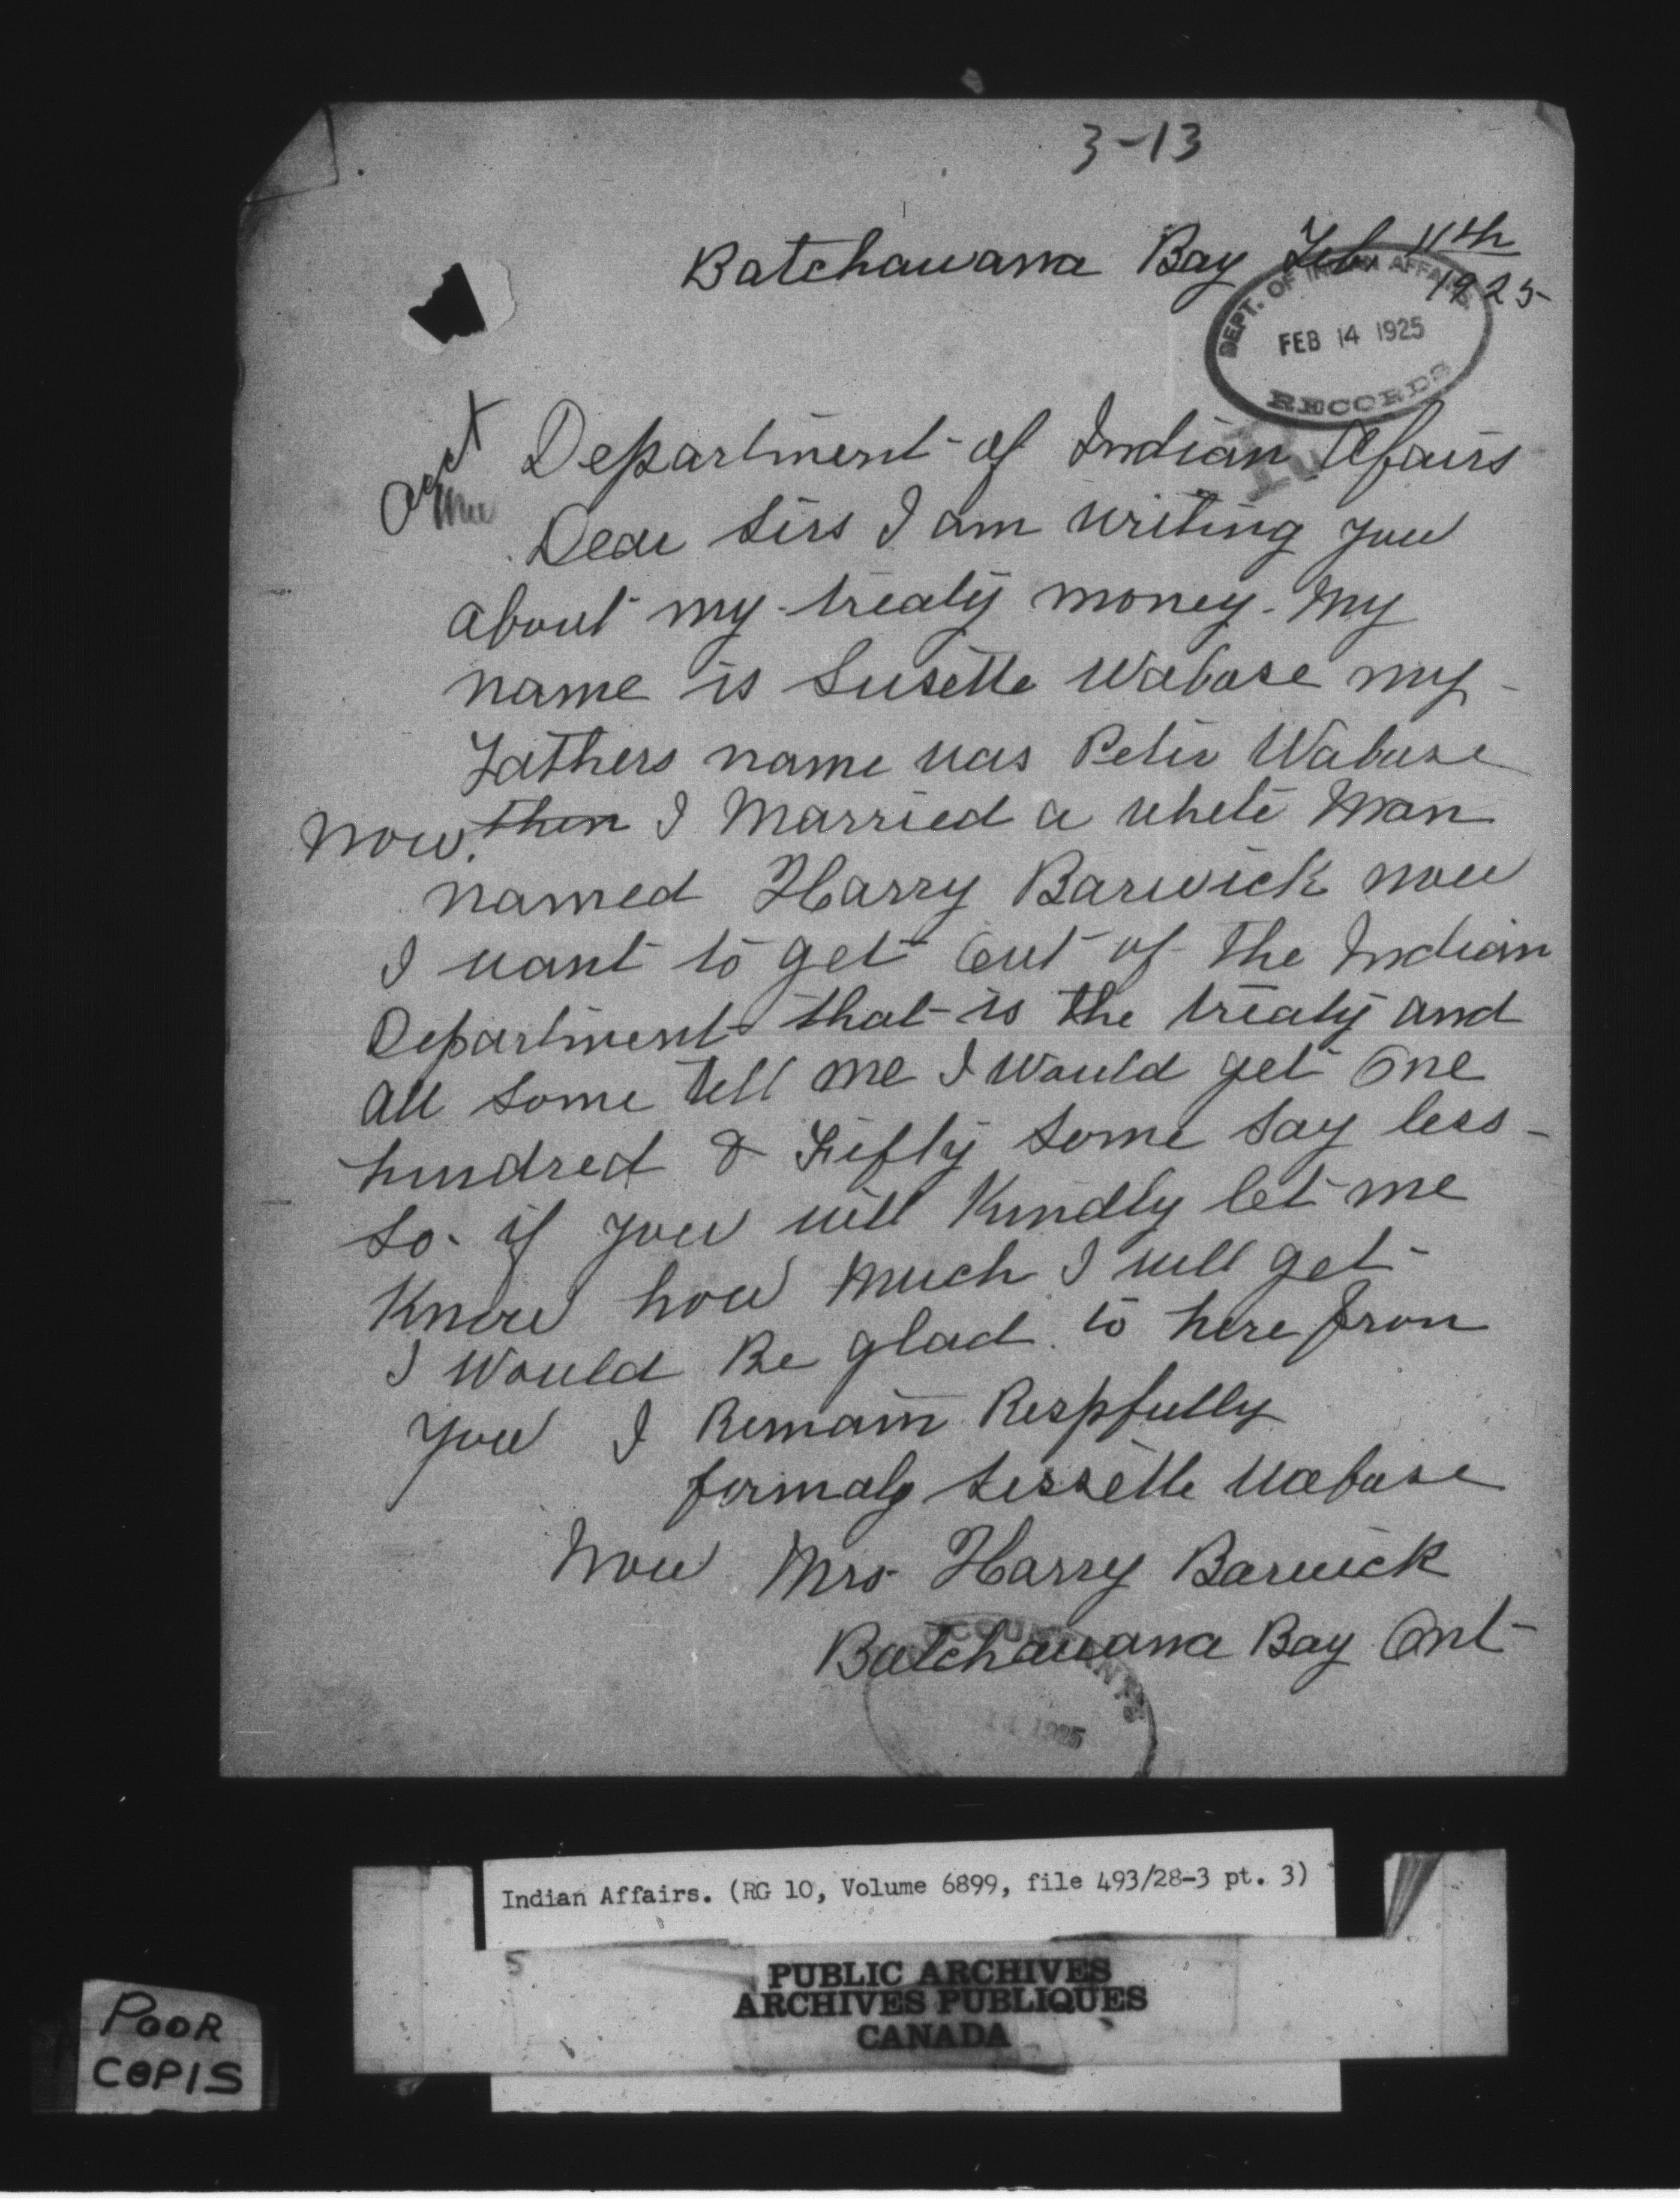 3-13
Batchawana Bay Feb 11th
1925
DEPT. OF INDIAN AFFAIRS
FEB 14 1925
RECORDS
Acct
Department of Indian Afairs
Dear sirs I am writing you
about my treaty money. My
name is Susette Wabose my
Fathers name was Peter Wabose
now. then I Married a white Man
named Harry Barwick now
I want to get out of the Indian
Department that is the treaty and
all some tell me I would get one
hundred & Fifty some say less
so if you will Kindly let me
Know how Much I will get
I would Be glad to here from
you I Remain Respfully
formaly Sessette Wabose
Now Mrs Harry Barwick
Batchawana Bay Ont
ACCOUNTANT'S
1925
Indian Affairs. (RG 10, Volume 6899, file 493/28-3 pt. 3)
5
PUBLIC ARCHIVES
ARCHIVES PUBLIQUES
CANADA
POOR
COPIS